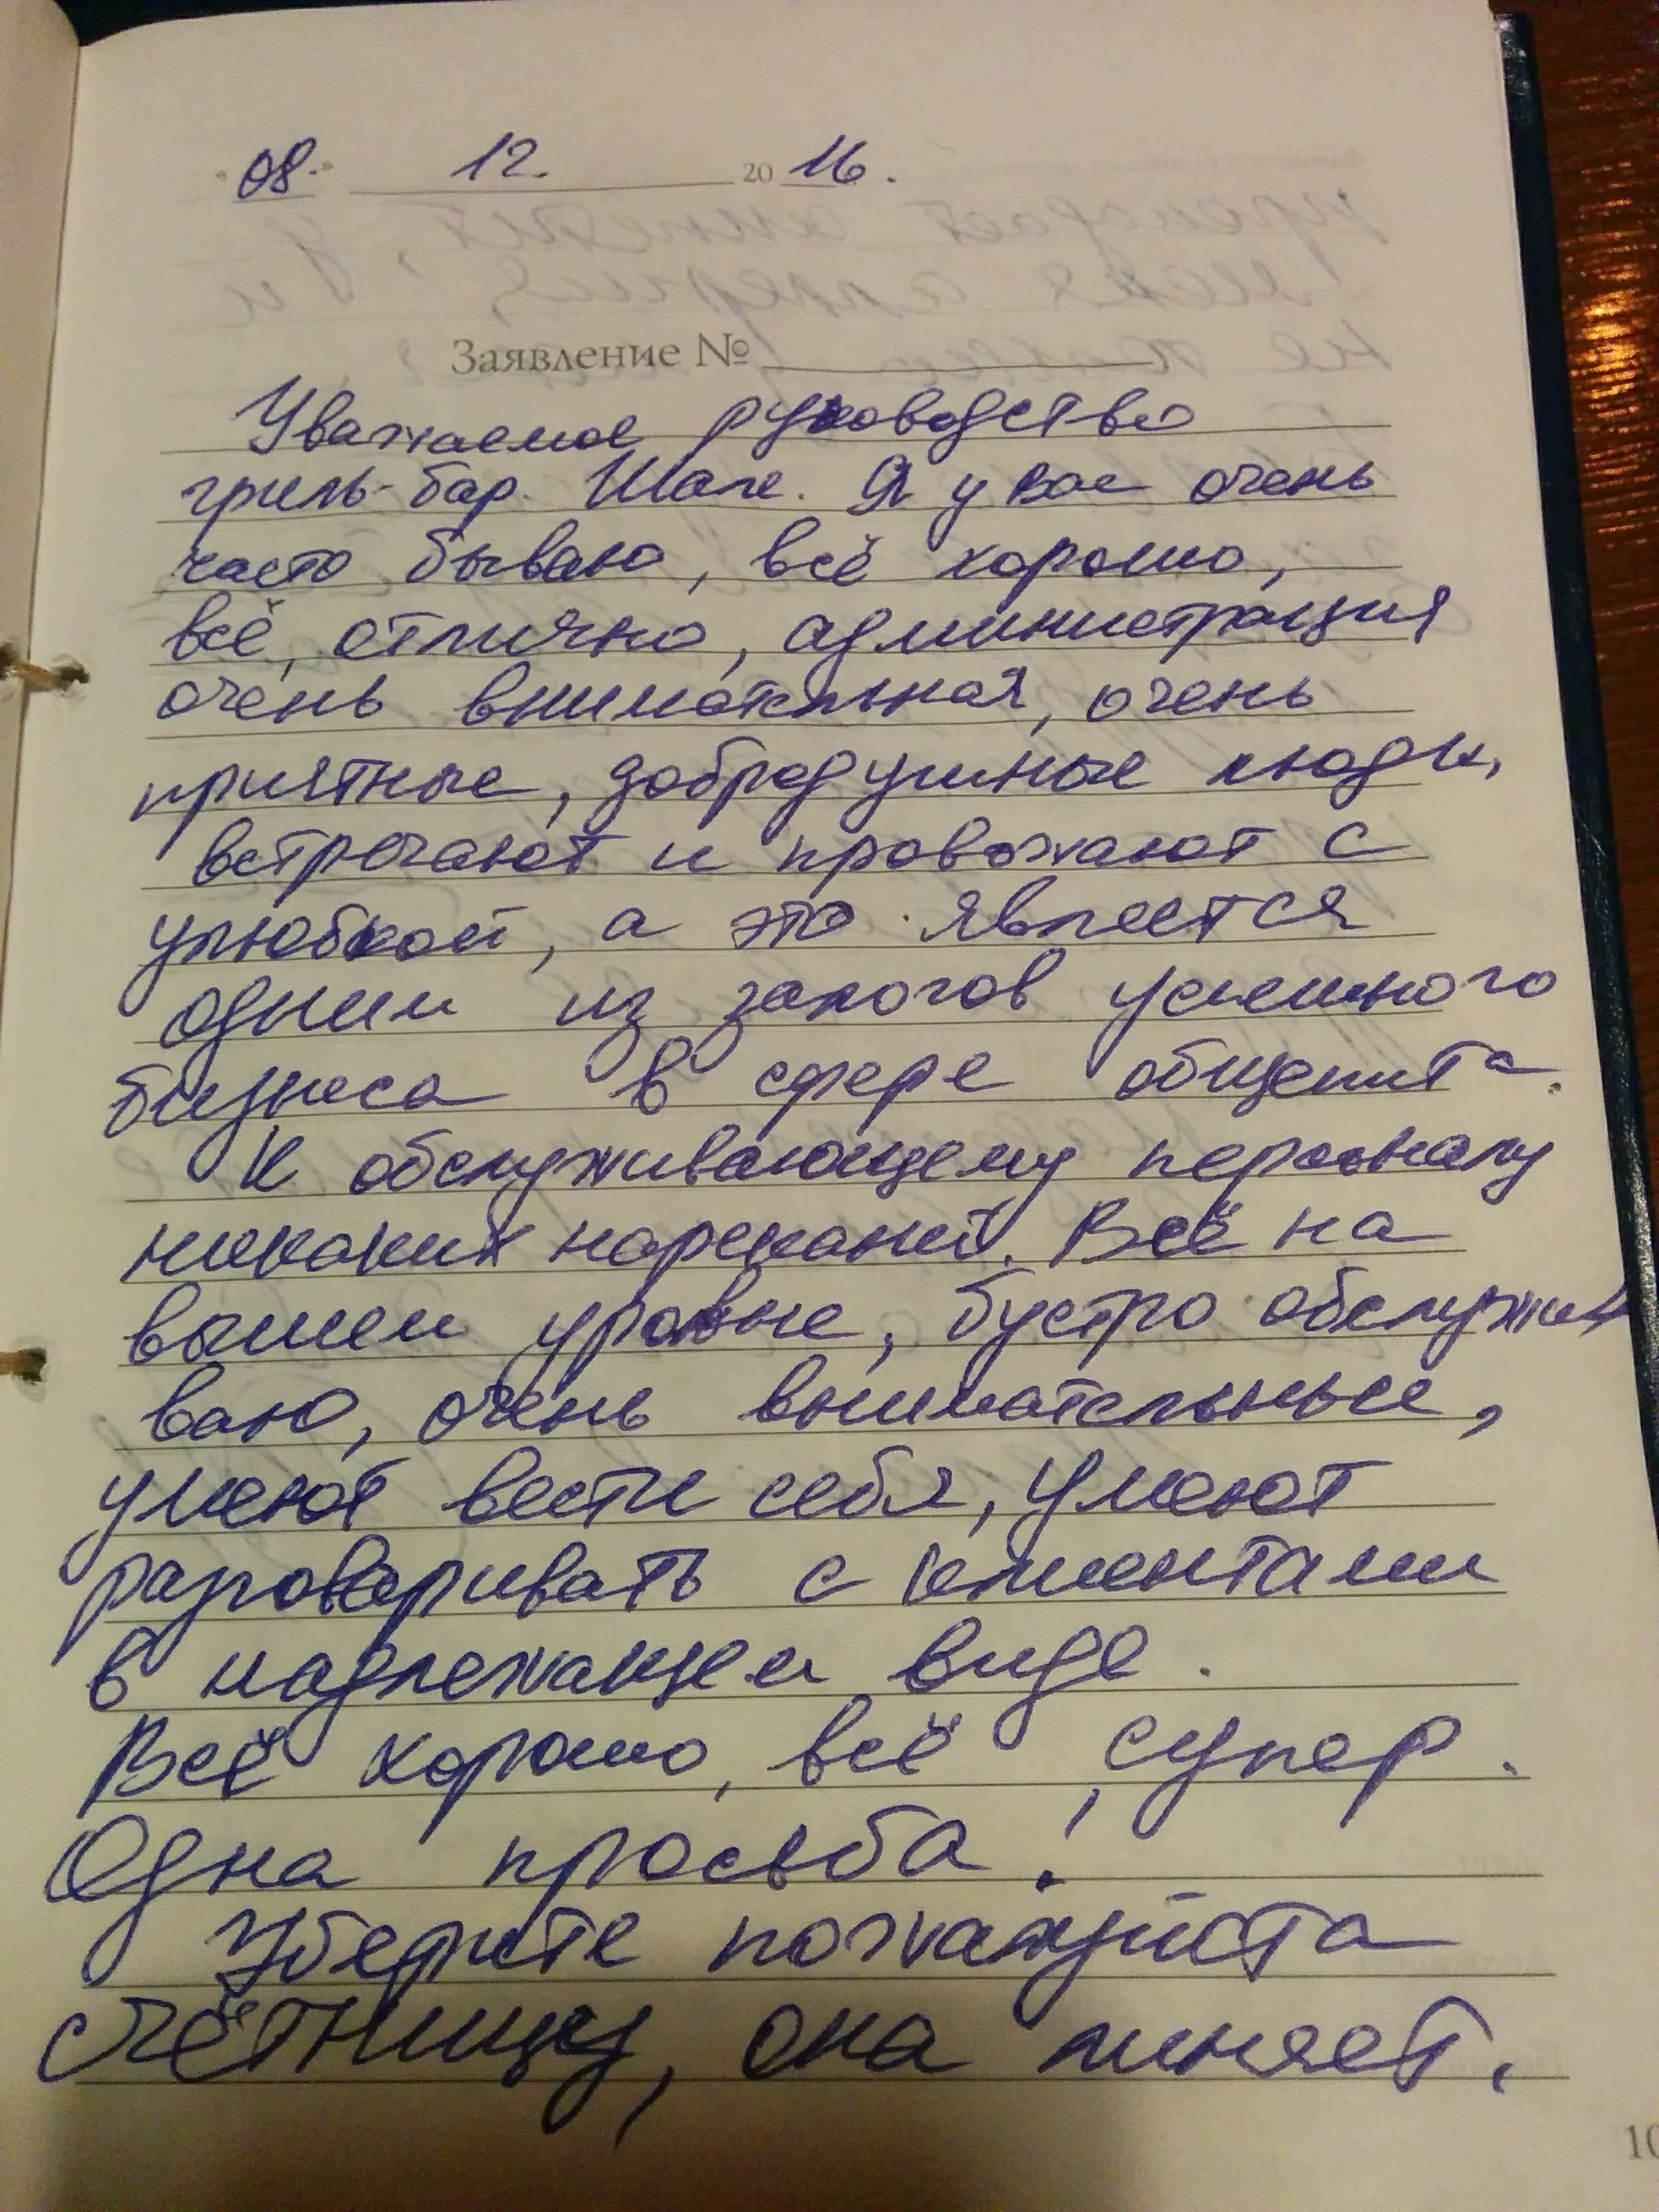 "08." 12. 2016.
Заявление №
Уважаемое руководство
гриль-бар. Шале. Я у вас очень
часто бываю, всё хорошо,
всё, отлично, администрация
очень внимательная, очень
приятные, добродушные люди,
встречают и провожают с
улюбкой, а это является
одним из залогов успешного
бизнеса в сфере общепита.
К обслуживающему персоналу
никаких нареканий. Всё на
вышем уровне, бустро обслужи
ваю, очень внимательные,
умеют вести себя, умеют
разговаривать с клиентами
в надлежащем виде.
Всё хорошо, всё супер.
Одна просьба!
Уберите пожалуйста
счётницу, она линяет.
10